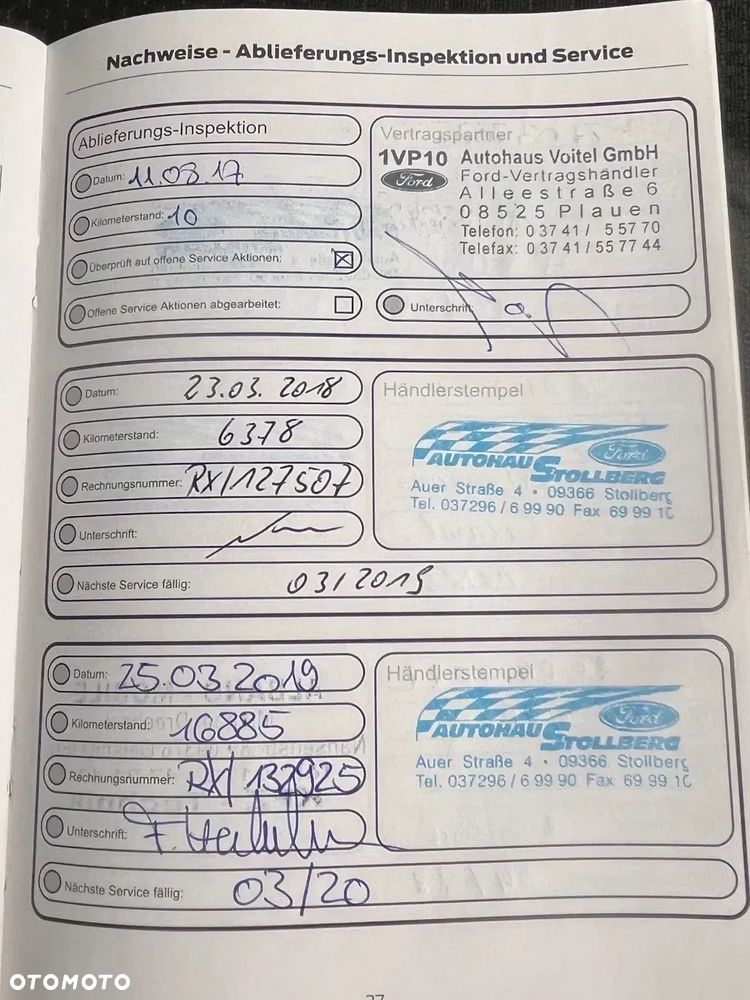 Nachweise - Ablieferungs-Inspektion und Service
Ablieferungs-Inspektion
Datum: 11.08.17
Kilometerstand: 10
Überprüft auf offene Service Aktionen:
Offene Service Aktionen abgearbeitet:
Vertragspartner
1VP10 Autohaus Voitel GmbH
Ford Ford-Vertragshändler
Alleestraße 6
08525 Plauen
Telefon: 0 37 41 / 5 57 70
Telefax: 0 37 41 / 55 77 44
Unterschrift:
Datum: 23.03.2018
Kilometerstand: 6378
Rechnungsnummer: RX/127507
Unterschrift:
Nächste Service fällig: 03/2019
Händlerstempel
Ford
AUTOHAUS STOLLBERG
Auer Straße 4 • 09366 Stollberg
Tel. 037296 / 6 99 90 Fax 69 99 10
Datum: 25.03.2019
Kilometerstand: 16885
Rechnungsnummer: RX/132925
Unterschrift:
Nächste Service fällig: 03/20
Händlerstempel
Ford
AUTOHAUS STOLLBERG
Auer Straße 4 • 09366 Stollberg
Tel. 037296 / 6 99 90 Fax 69 99 10
OTOMOTO